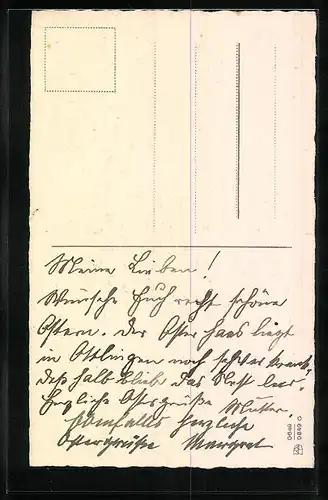 Meine Lieben!
Wünsche Euch recht schöne
Ostern. Der Osterhaas liegt
in Ottlingen noch schwer krank,
deßhalb blieb das Nest leer.
Herzliche Ostergrüße Mutter.
Ebenfalls herzliche
Ostergrüße Margret
0649
0649 G